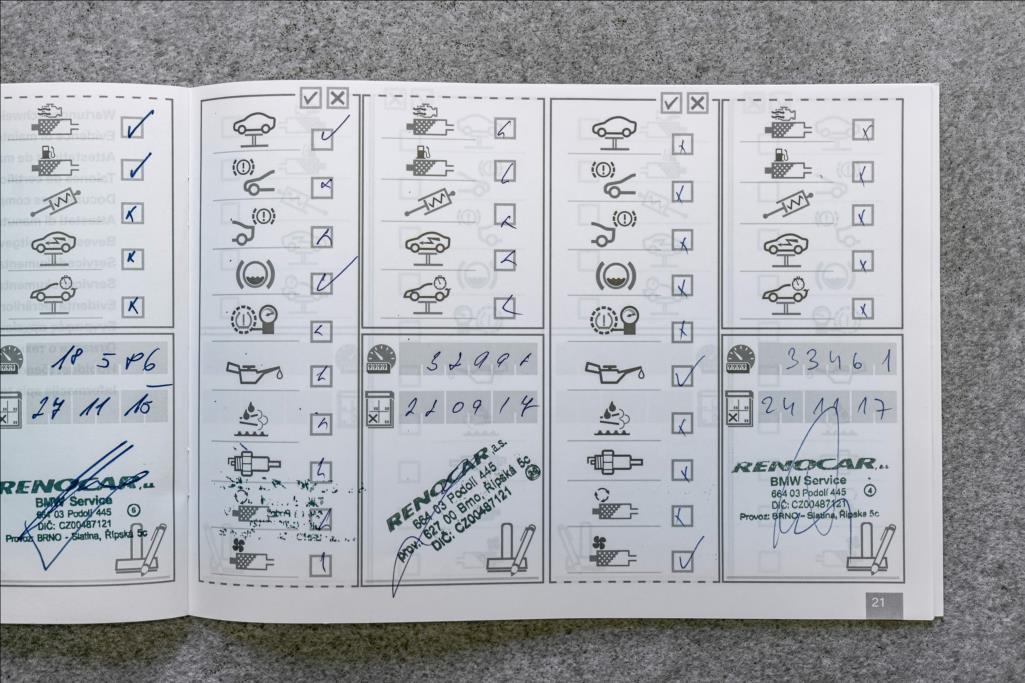 18 5 86
27 11 15
RENOCAR, a.s.
BMW Service
664 03 Podolí 445
DIČ: CZ00487121
Provoz: BRNO - Slatina, Řípská 5c
5
22 09 17
RENOCAR, a.s.
664 03 Podolí 445
prov.: 627 00 Brno, Řípská 5c
DIČ: CZ00487121
33461
24 11 17
RENOCAR, a.s.
BMW Service
664 03 Podolí 445
DIČ: CZ00487121
Provoz: BRNO - Slatina, Řípská 5c
4
21